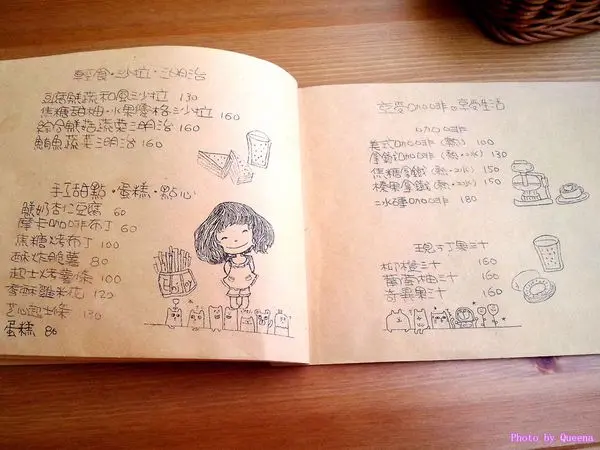 輕食·沙拉·三明治
豆腐鮮蔬和風沙拉 130
焦糖甜柚·水果優格沙拉 160
綜合鮮菇蔬菜三明治 160
鮪魚蔬菜三明治 160
手工甜點·蛋糕·點心
鮮奶杏仁豆腐 60
摩卡咖啡布丁 60
焦糖烤布丁 100
酥炸脆薯 80
起士烤薯條 100
香酥雞米花 120
芝心起士條 130
蛋糕 80
享受咖啡。享受生活
咖啡
美式咖啡(熱) 100
拿鐵咖啡(熱·冰) 130
焦糖拿鐵(熱·冰) 150
榛果拿鐵(熱·冰) 150
冰磚咖啡 180
現打果汁
柳橙汁 160
葡萄柚汁 160
奇異果汁 160
Photo by Queena